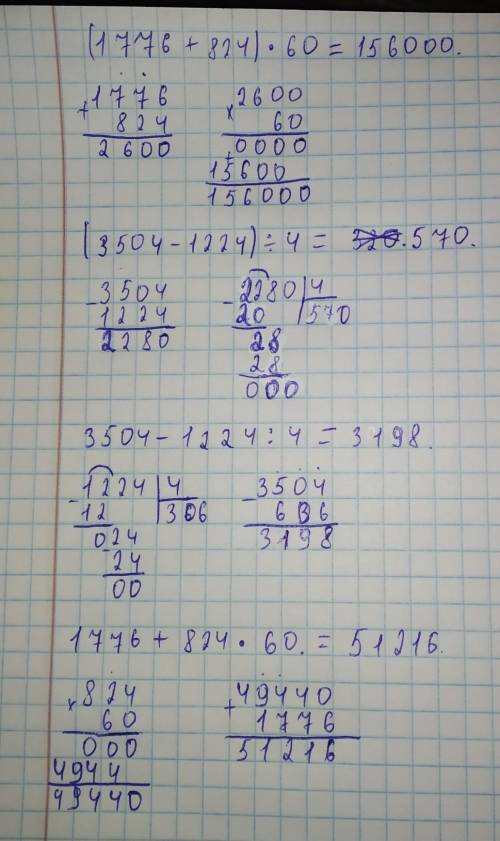 (1776 + 824) · 60 = 156000.
+ 1776
824
2600
× 2600
60
+ 0000
15600
156000
(3504 - 1224) ÷ 4 = 320. 570.
- 3504
1224
2280
- 2280 | 4
20 | 570
28
28
000
3504 - 1224 ÷ 4 = 3198.
- 1224 | 4
12 | 306
024
- 24
00
- 3504
3198
1776 + 824 · 60. = 51216.
× 824
60
000
4944
49440
+ 49440
1776
51216